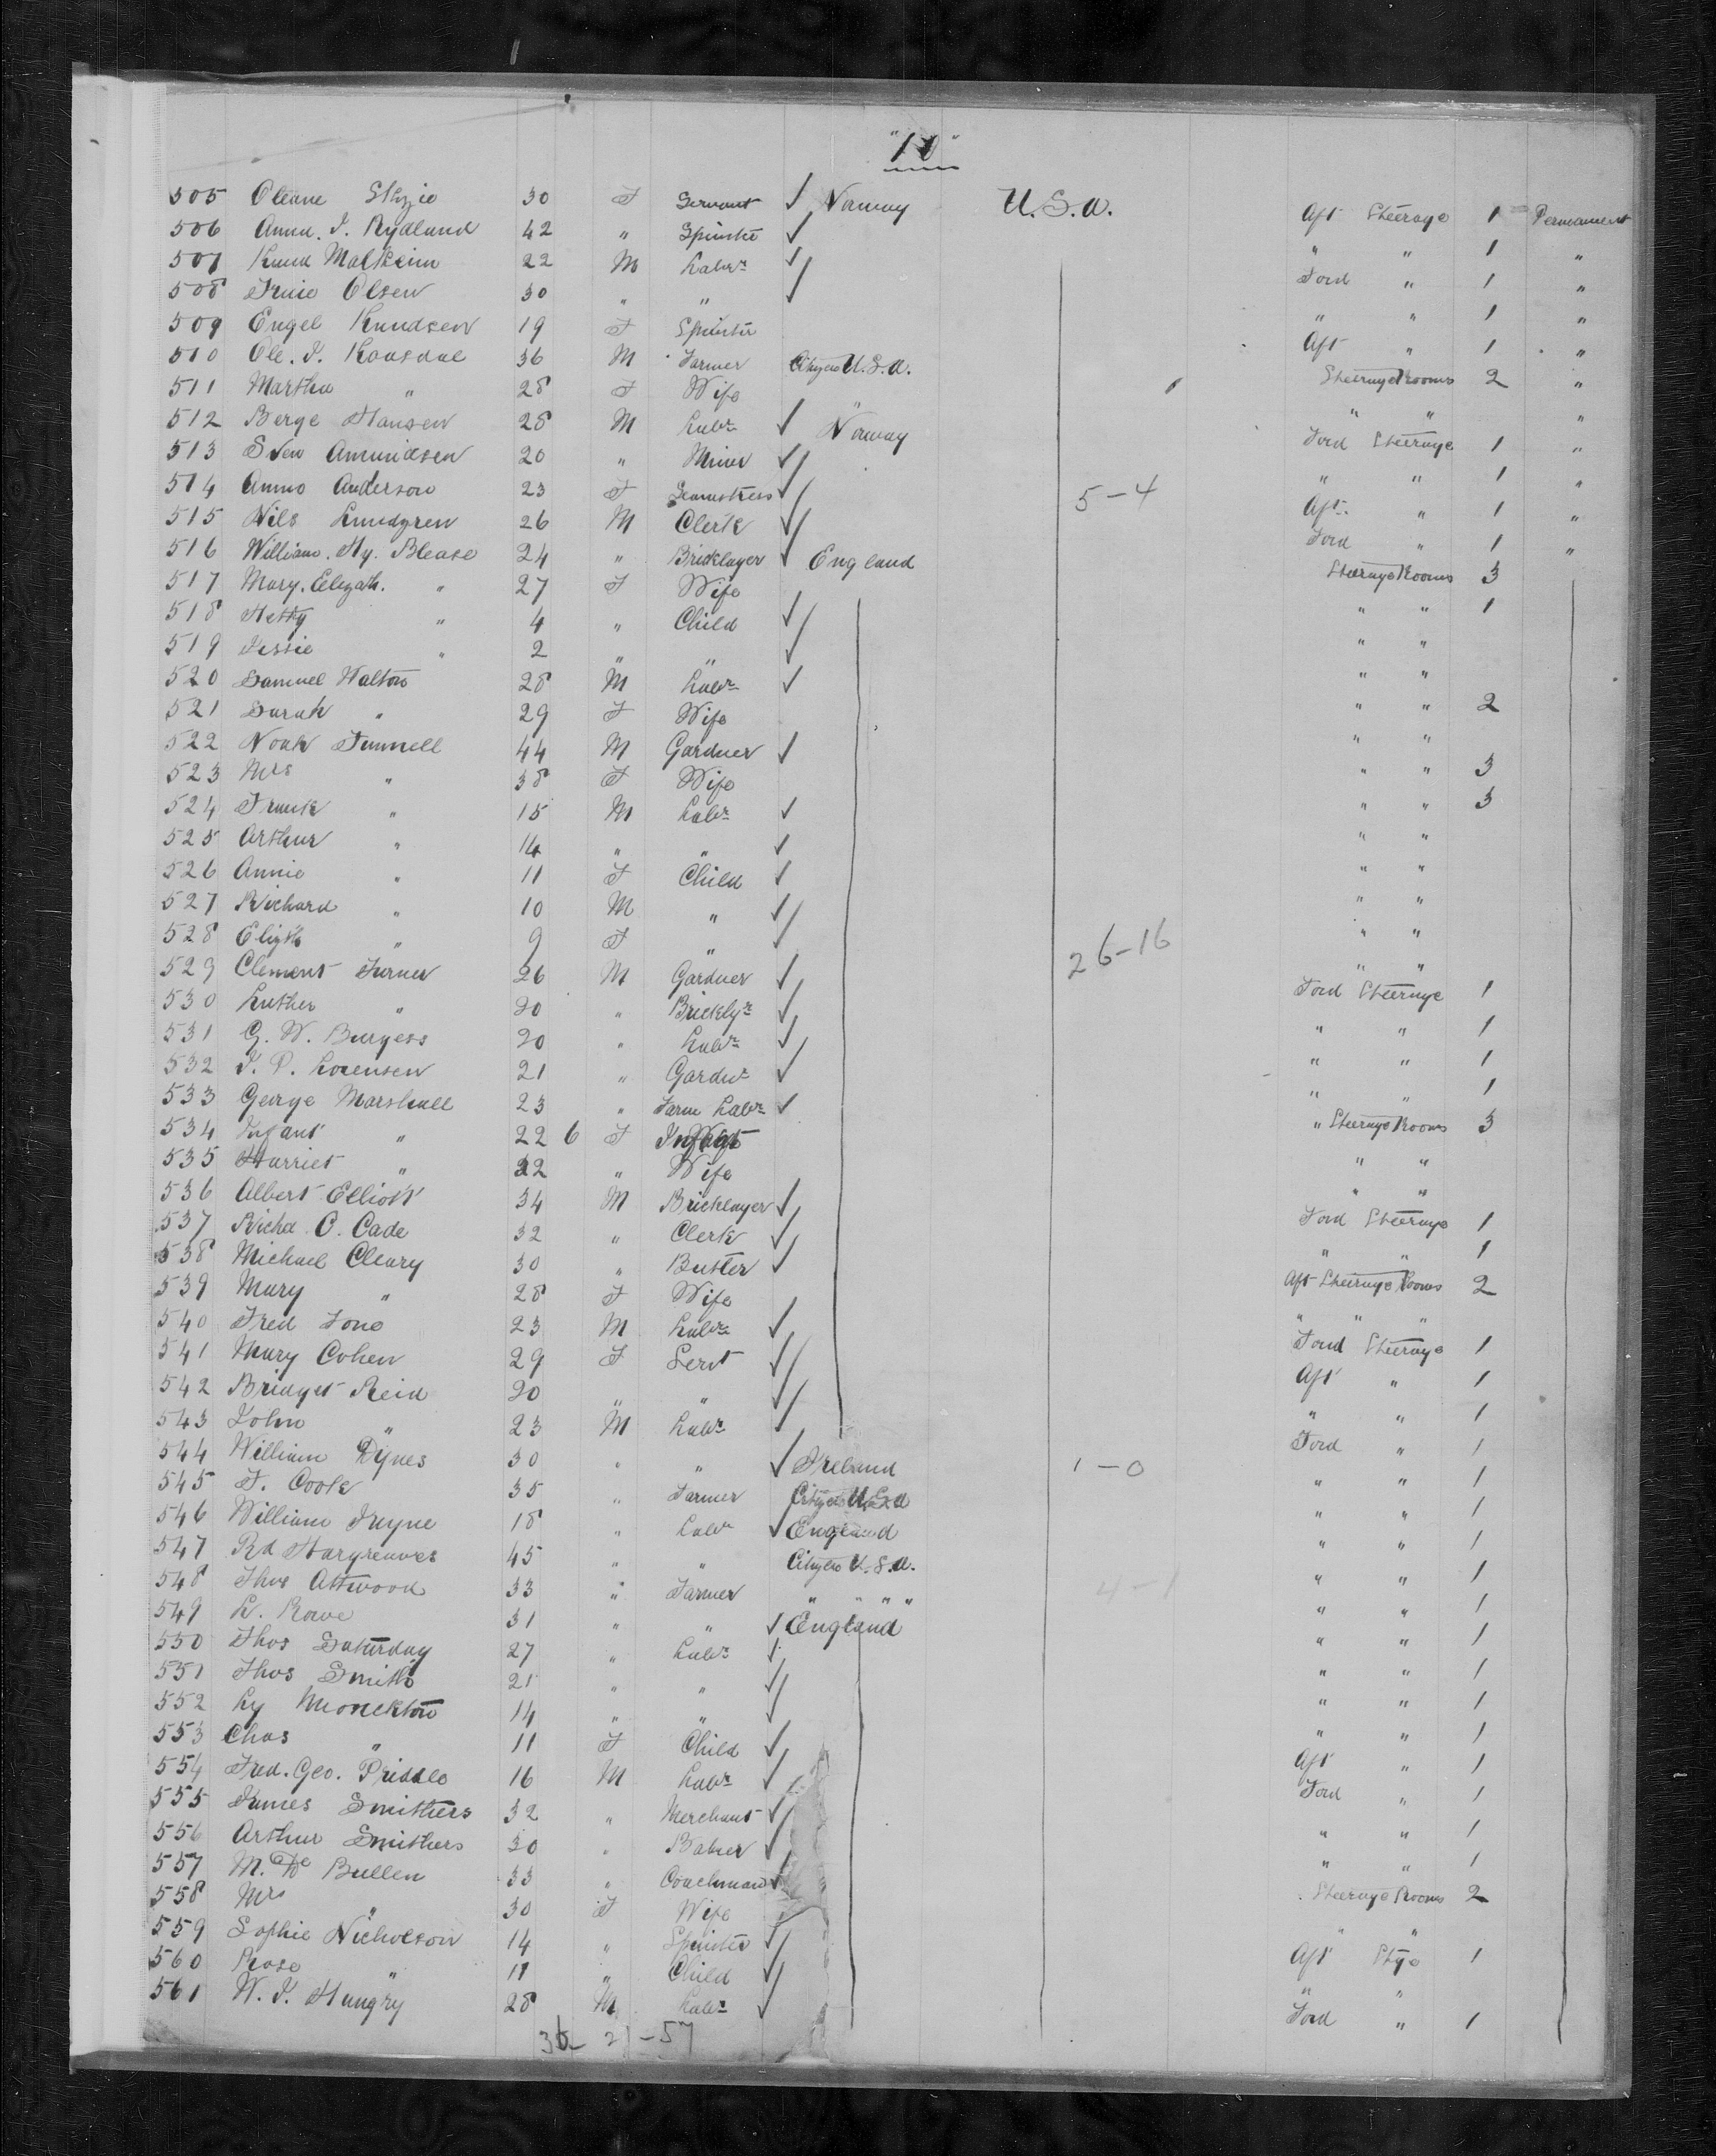 "10"
505 Oleane Skizie 30 F Servant ✓ Norway U.S.A. Aft Steerage 1 Permament
506 Anna. I. Rydland 42 " Spinster ✓ " " 1 "
507 Knud Malkeim 22 M Labr ✓ Ford " 1 "
508 Olsen 30 " " ✓ " " 1 "
509 Engel Knudsen 19 F Spinster Aft " 1 "
510 Ole. I. 36 M Farmer Citizen U.S.A. Steerage Rooms 2 "
511 Martha " 28 F Wife " " " "
512 Berge Hansen 28 M Labr ✓ Norway Ford Steerage 1 "
513 Sven Amundsen 20 " Miner ✓ " " 1 "
514 Anna Anderson 23 F Seamstress ✓ 5-4 Aft " 1 "
515 Nils Lundgren 26 M Clerk ✓ Ford " 1 "
516 William. Hy. Blease 24 " Bricklayer ✓ England Steerage Rooms 3
517 Mary. Elizath. " 27 F Wife " " 1
518 Hetty " 4 " Child ✓ " "
519 Jessie " 2 " " ✓ " "
520 Samuel Walton 28 M Labr ✓ " " 2
521 Sarah " 29 F Wife " "
522 Noah Funnell 44 M Gardner ✓ " " 3
523 Mrs " 38 F Wife " " 3
524 Frank " 15 M Labr ✓ " "
525 Arthur " 14 " " ✓ " "
526 Annie " 11 F Child ✓ " "
527 Richard " 10 M " ✓ " "
528 Elizth " 9 F " ✓ 26-16 " "
529 Clement Turner 26 M Gardner ✓ Ford Steerage 1
530 Luther " 20 " Bricklyr ✓ " " 1
531 G. W. Burgess 20 " Labr ✓ " " 1
532 J. P. Lorensen 21 " Gardnr ✓ " " 1
533 George Marshall 23 " Farm Labr ✓ " Steerage Rooms 3
534 Infant " 22 6 F Infant " "
535 Harriet " 22 " Wife " "
536 Albert Elliott 34 M Bricklayer ✓ Ford Steerage 1
537 Richd. O. Cade 32 " Clerk ✓ " " 1
538 Michael Cleary 30 " Butler ✓ Aft Steerage Rooms 2
539 Mary " 28 F Wife " " "
540 Fred Tone 23 M Labr ✓ Ford Steerage 1
541 Mary Cohen 29 F Servt ✓ Aft " 1
542 Bridget Reid 20 " " ✓ " " 1
543 John " 23 M Labr ✓ Ford " 1
544 William Dynes 30 " " ✓ Ireland 1-0 " " 1
545 T. Cook 35 " Farmer Citizen U.S.A " " 1
546 William 18 " Labr ✓ England " " 1
547 Rd Hargreaves 45 " " Citizen U.S.A. " " 1
548 Thos Attwood 33 " Farmer " " " " 4-1 " " 1
549 L. Rowe 31 " " ✓ England " " 1
550 Thos Saturday 27 " Labr ✓ " " 1
551 Thos Smith 21 " " ✓ " " 1
552 Hy Monckton 14 " " ✓ " " 1
553 Chas " 11 F Child ✓ Aft " 1
554 Fred. Geo. Priddle 16 M Labr ✓ Ford " 1
555 James Smithers 32 " Merchant ✓ " " 1
556 Arthur Smithers 30 " ✓ " " 1
557 M. De Bullen 33 " Coachman ✓ Steerage Rooms 2
558 Mrs " 30 F Wife " "
559 Sophie Nicholson 14 " Spinster ✓ Aft Stge 1
560 Rose " 11 " Child ✓ " "
561 W. J. Hungry 28 M Labr ✓ Ford " 1
36 21-57